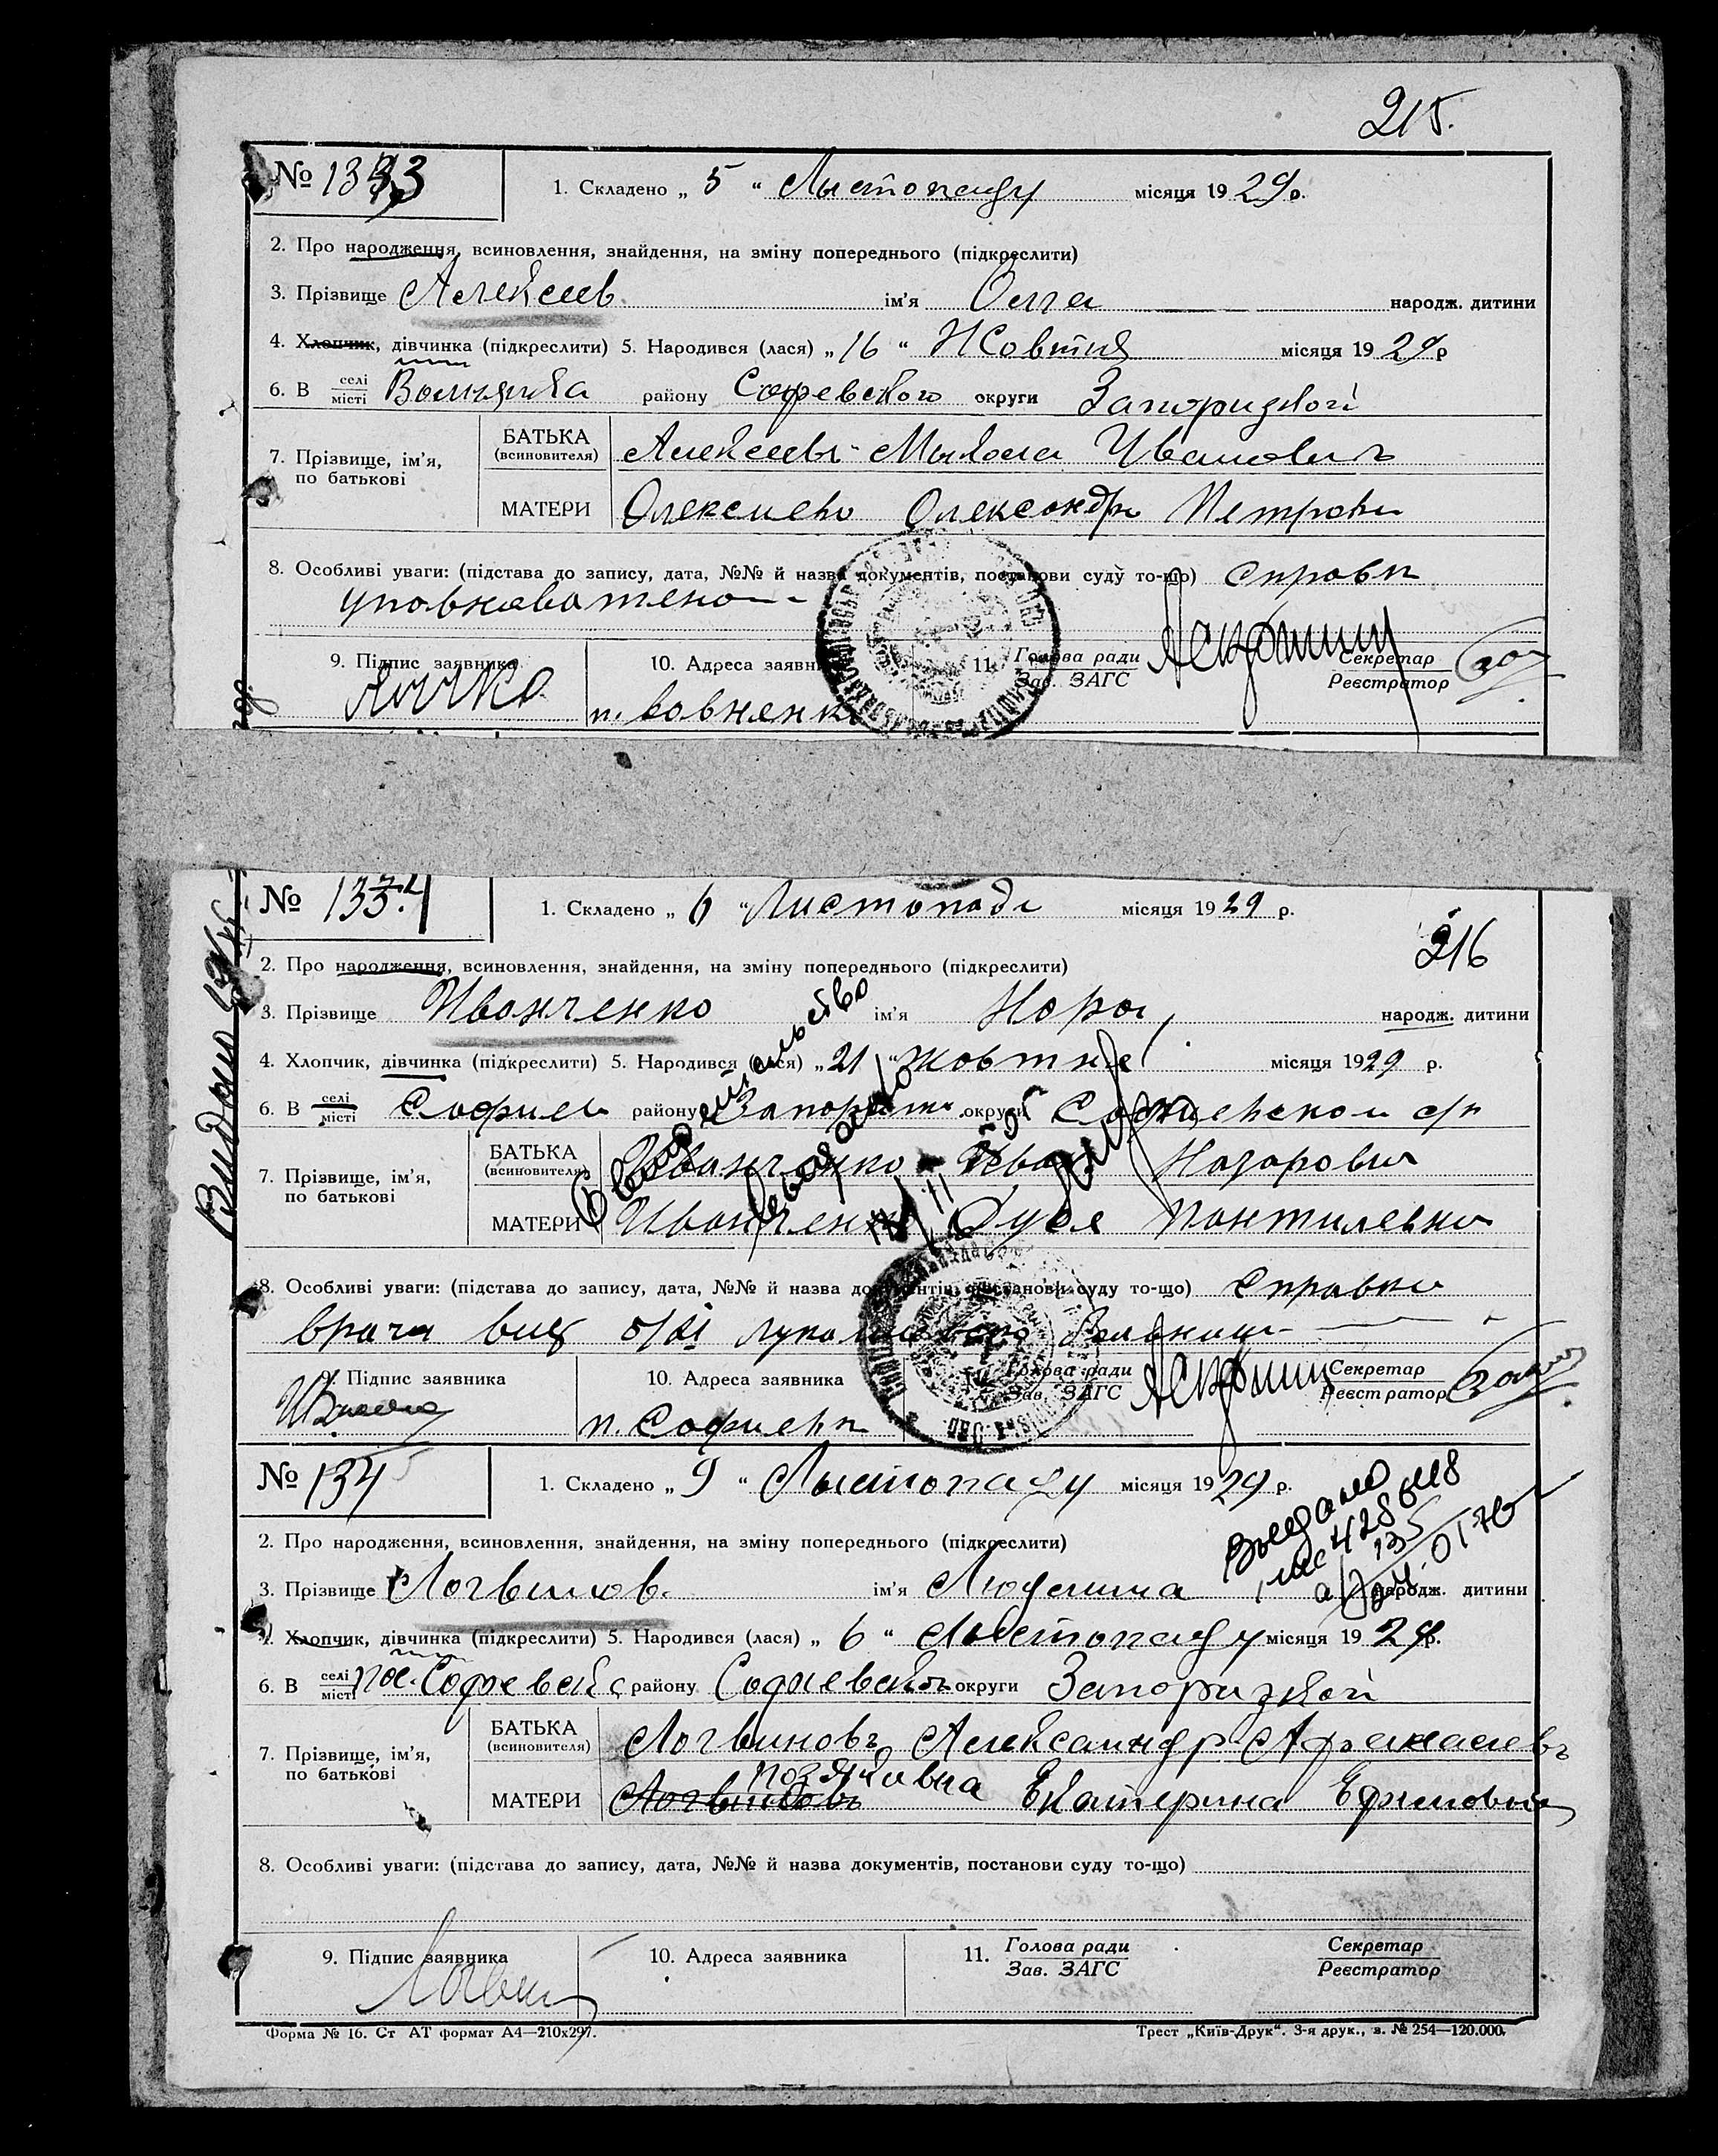 215.
№ 133
1. Складено „ 5 “ Лыстопаду місяця 1929 р.
2. Про народження, всиновлення, знайдення, на зміну попереднього (підкреслити)
3. Прізвище Алексеев ім’я Олга народж. дитини
4. Хлопчик, дівчинка (підкреслити) 5. Народився (лася) „ 16 “ Жовтня місяця 1929 р
6. В селі місті району Софевского округи Запоризкой
7. Прізвище, ім’я, по батькові
БАТЬКА (всиновителя) Алексеевъ Мыкола Иванович
МАТЕРИ Олексиева Олександра Петровна
8. Особливі уваги: (підстава до запису, дата, №№ й назва документів, постанови суду то-що) справка
9. Підпис заявника 10. Адреса заявника 11. Голова ради Зав. ЗАГС Секретар Реєстратор
п.
№ 134
1. Складено „ 6 “ Листопада місяця 1929 р.
216
2. Про народження, всиновлення, знайдення, на зміну попереднього (підкреслити)
3. Прізвище Иванченко ім’я Нора народж. дитини
4. Хлопчик, дівчинка (підкреслити) 5. Народився (лася) „ 21 “ жовтня місяця 1929 р.
6. В селі місті району округи
7. Прізвище, ім’я, по батькові
БАТЬКА (всиновителя) Иванченко Иван Назарович
МАТЕРИ Иванченко Пантилевна
Свидетельство
8. Особливі уваги: (підстава до запису, дата, №№ й назва документів, постанови суду то-що) справка
врача
9. Підпис заявника 10. Адреса заявника 11. Голова ради Зав. ЗАГС Секретар Реєстратор
п. Софиевка
Видано
№ 135
1. Складено „ 9 “ Лыстопаду місяця 1929 р.
Выдано
2. Про народження, всиновлення, знайдення, на зміну попереднього (підкреслити)
3. Прізвище Логвинов. ім’я Людмила народж. дитини
4. Хлопчик, дівчинка (підкреслити) 5. Народився (лася) „ 6 “ Лыстопаду місяця 1929 р.
6. В селі місті пос. Софиевка району Софиевского округи Запоризкой
7. Прізвище, ім’я, по батькові
БАТЬКА (всиновителя) Логвиновъ Александр Афанасиевъ
МАТЕРИ Логвиновъ Екатерина Ефимовна
8. Особливі уваги: (підстава до запису, дата, №№ й назва документів, постанови суду то-що)
9. Підпис заявника 10. Адреса заявника 11. Голова ради Зав. ЗАГС Секретар Реєстратор
Форма № 16. Ст АТ формат А4—210х297.
Трест „Київ-Друк“. 3-я друк., з. № 254—120.000.